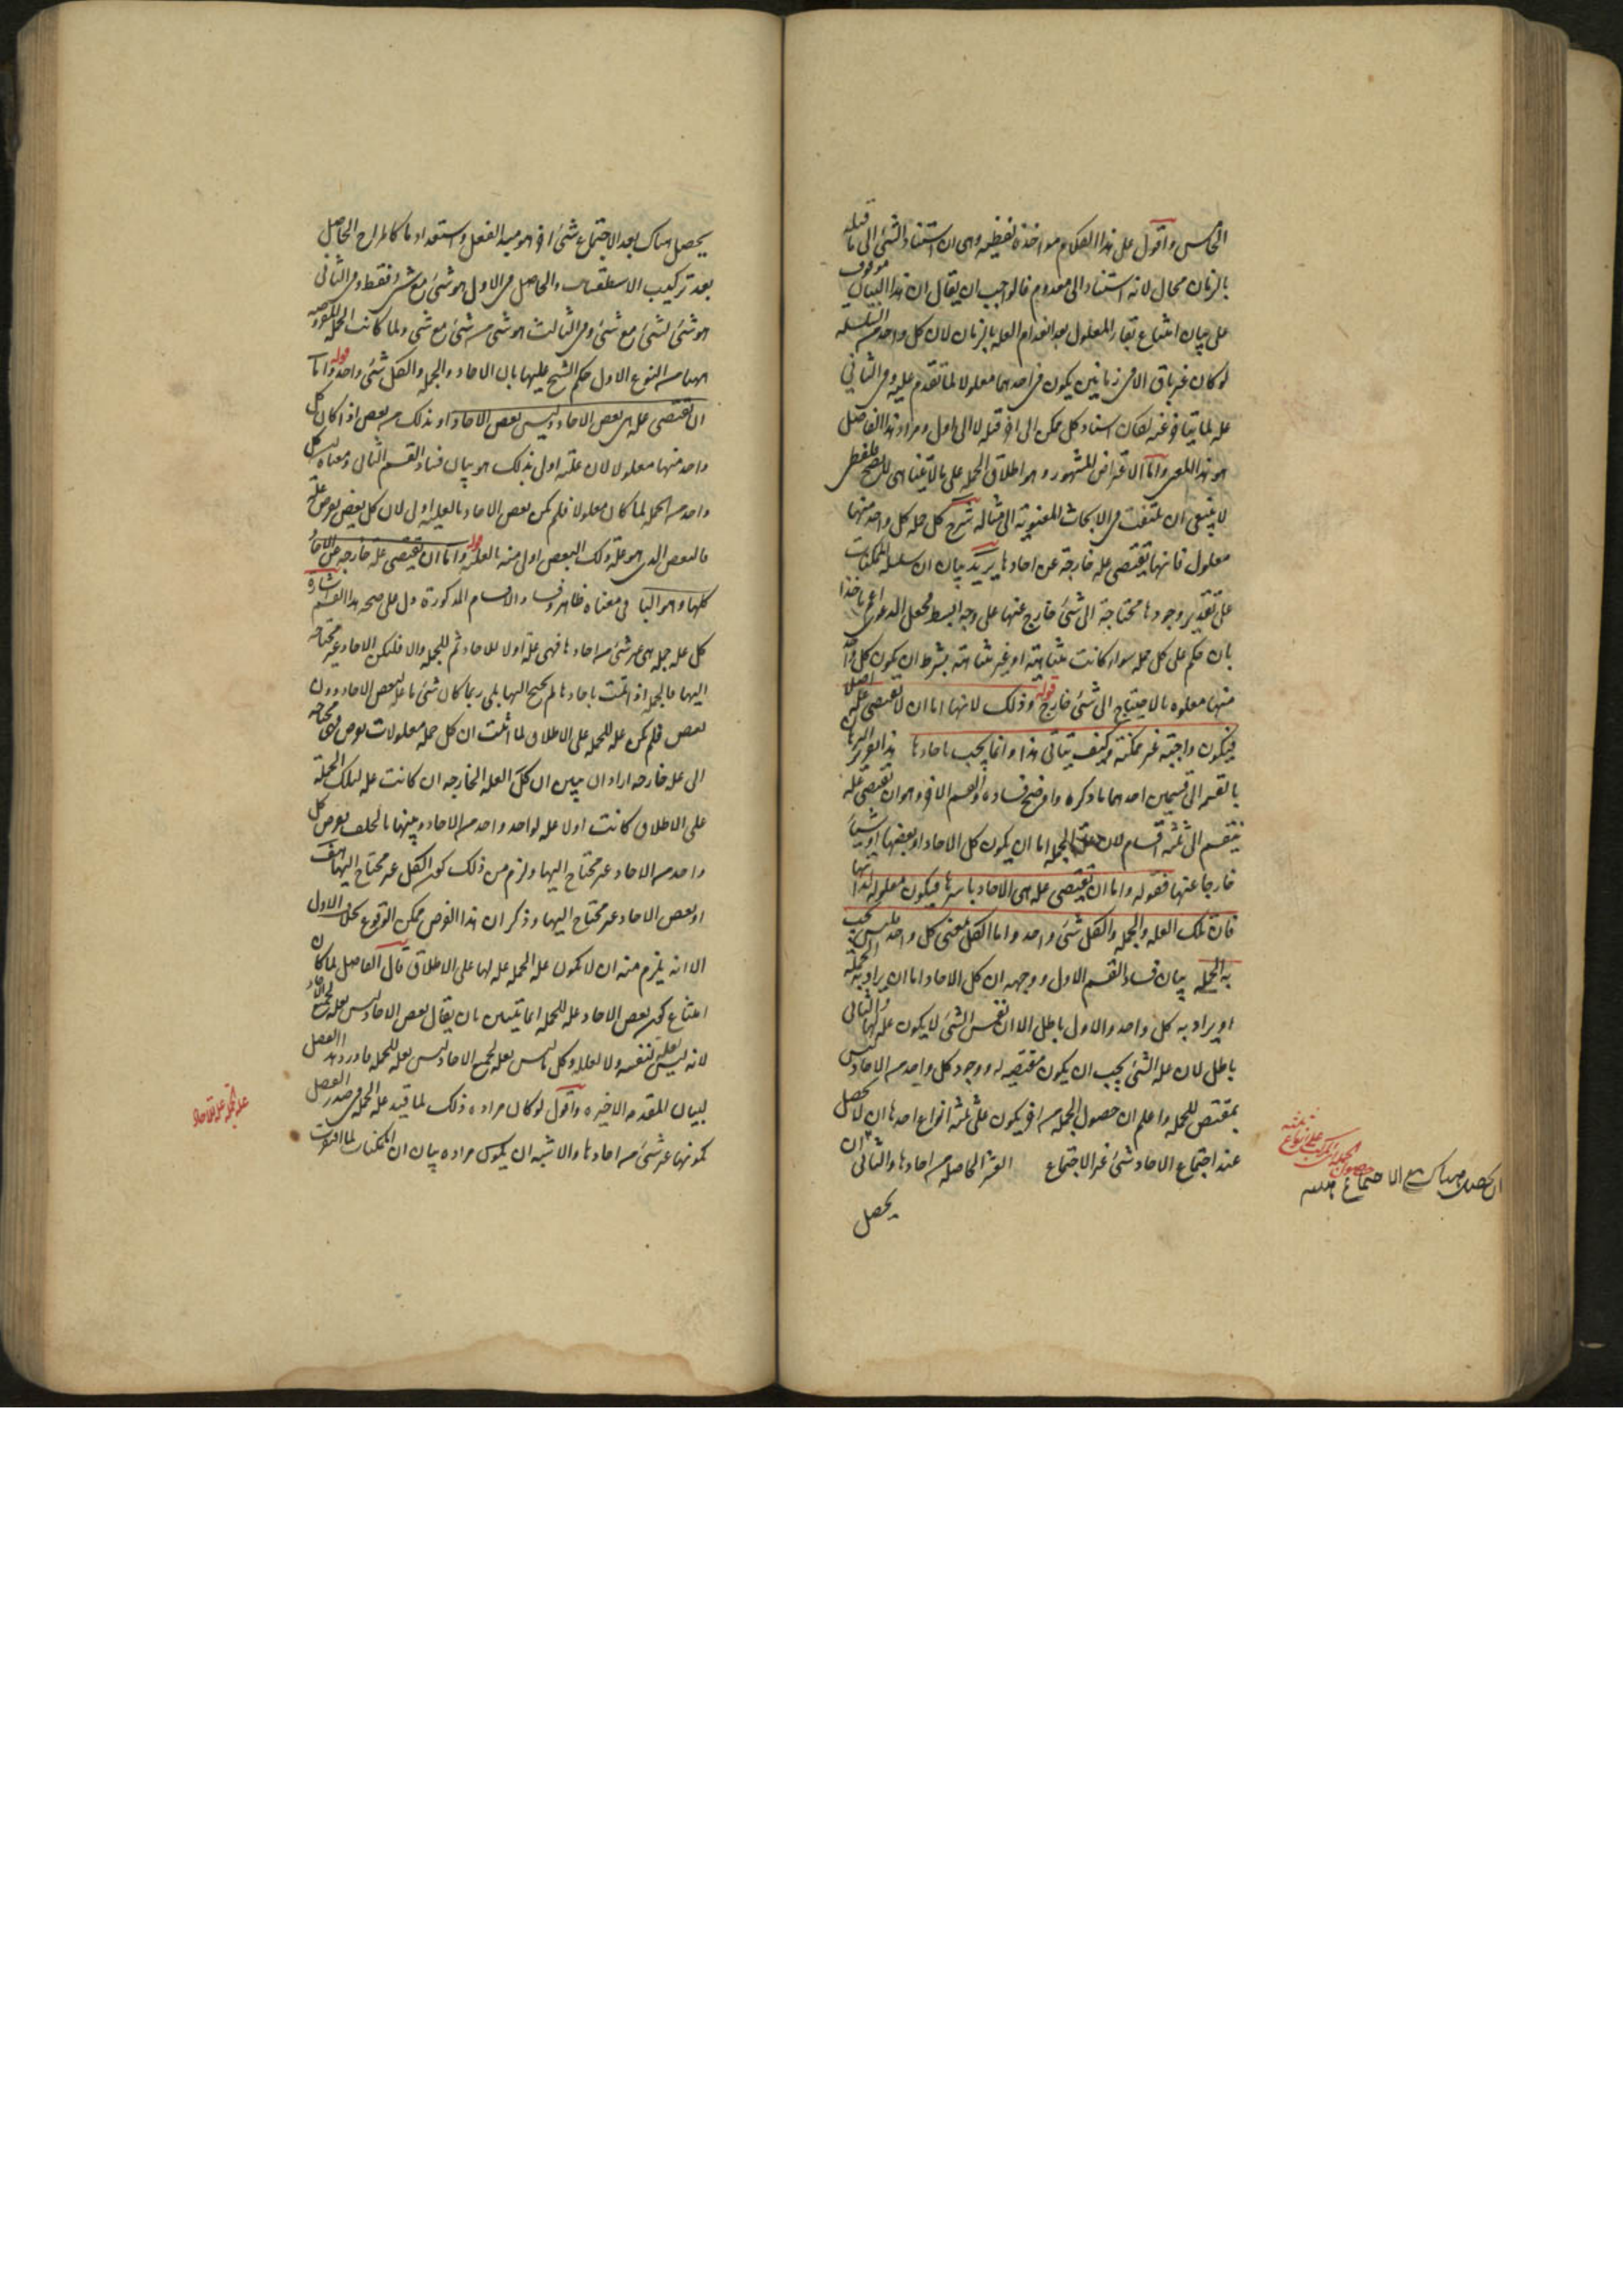 الخامس واقول على هذا الكلام مواخذة لفظية وهى ان استناد الشئ الى ما قبله
بالزمان محال لانه استناد الى معدوم فالواجب ان يقال ان هذا البيان موقوف
على بيان امتناع بقاء المعلول بعد انعدام العلة بالزمان لان كل واحد من السلسلة
لو كان غير باق الا فى زمانين يكون فى احدهما معلولا لما تقدم عليه وفى الثانى
علة لما يتاخر عنه لكان استناد كل ممكن الى اخر قبله لا الى اول ومراد هذا الفاضل
هو هذا المعنى واما الاعتراض المشهور وهو اطلاق الجملة على ما لا يتناهى لفظى
لا ينبغى ان يلتفت فى الابحاث المعنوية الى مثاله شرح كل جملة كل واحد منها
معلول فانها تقتضى علة خارجة عن احادها يريد بيان ان سلسلة الممكنات
على تقدير وجودها محتاجة الى شئ خارج عنها على وجه ابسط فجعل الدعوى اعم ماخذا
بان حكم على كل جملة سواء كانت متناهية او غير متناهية بشرط ان يكون كل واحد
منها معلولا بالاحتياج الى شئ خارج قوله وذلك لانها اما ان لا تقتضى علة اصلا
فيكون واجبة غير ممكنة وكيف يتاتى هذا وانما يجب باحادها هذا تقرير البرهان
بالتقسيم الى قسمين احدهما ما ذكره واوضح فساده والقسم الاخر وهو ان تقتضى علة
ينقسم الى ثلثة اقسام لان علة الجملة اما ان يكون كل الاحاد او بعضها او شيئا
خارجا عنها فقوله واما ان تقتضى علة هى الاحاد باسرها فيكون معلولة لذاتها
فان تلك العلة والجملة والكل شئ واحد واما الكل بمعنى كل واحد فليس يجب
به الجملة بيان فساد القسم الاول ووجهه ان كل الاحاد اما ان يراد به الجملة
او يراد به كل واحد والاول باطل الا ان نفس الشئ لا يكون علة لها والثانى
باطل لان علة الشئ يجب ان يكون مقتضيه له ووجود كل واحد من الاحاد ليس
بمقتض للجملة واعلم ان حصول الجملة من اخر يكون على ثلثة انواع احدها ان لا يحصل
عند اجتماع الاحاد شئ غير الاجتماع العشرة الحاصلة من احادها والثانى ان
يحصل
حصول الجملة المركبة على انواع ثلثة
ان يحصل هناك مع الاجتماع هيئة
يحصل هناك بعد الاجتماع شئ اخر هو مبدا الفعل واستعداد ما كالمزاج الحاصل
بعد تركيب الاسطقسات والحاصل فى الاول هو شئ مع شئ فقط وفى الثانى
هو شئ لشئ مع شئ وفى الثالث هو شئ من شئ مع شئ ولما كانت الجملة المفروضة
ههنا من النوع الاول حكم الشيخ عليها بان الاحاد والجملة والكل شئ واحد قوله واما
ان تقتضى علة هى بعض الاحاد وليس بعض الاحاد اولى بذلك من بعض اذا كان كل
واحد منها معلولا لان علته اولى بذلك هو بيان فساد القسم الثانى ومعناه ان كل
واحد من الجملة لما كان معلولا فلم يكن بعض الاحاد بالعلية اولى لان كل بعض يفرض علة
فالبعض الذى هو علة ذلك البعض اولى منه بالعلية قوله واما ان تقتضى علة خارجة عن الاحاد
كلها وهو الباقى معناه ظاهر وفساد الاقسام المذكورة دل على صحة هذا القسم اشارة
كل علة جملة هى غير شئ من احادها فهى علة اولا للاحاد ثم للجملة والا فليكن الاحاد غير محتاجة
اليها فالجملة اذا تمت باحادها لم يحتج اليها بلى ربما كان شئ ما علة لبعض الاحاد دون
بعض فلم يكن علة للجملة على الاطلاق لما اثبت ان كل جملة معلولات يفرض فهى محتاجة
الى علة خارجة اراد ان يبين ان تلك العلة الخارجة ان كانت علة لتلك الجملة
على الاطلاق كانت اولا علة لواحد واحد من الاحاد وبينها بالخلف بفرض كل
واحد من الاحاد غير محتاج اليها ولزم من ذلك كون الكل غير محتاج اليها هف
او بعض الاحاد غير محتاج اليها وذكر ان هذا الفرض ممكن الوقوع بخلاف الاول
الا انه يلزم منه ان لا يكون علة الجملة علة لها على الاطلاق قال الفاضل لما كان
امتناع كون بعض الاحاد علة للجملة انما يتبين بان يقال بعض الاحاد ليس بعلة لجميع الاحاد
لانه ليس بعلة لنفسه ولا لعلله وكل ما ليس بعلة لجميع الاحاد ليس بعلة للجملة فاورد هذا الفصل
لبيان المقدمة الاخيرة واقول لو كان مراده ذلك لما قيد علة الجملة فى صدر الفصل
بكونها غير شئ من احادها والاشبه ان يكون مراده بيان ان الممكنات لما افتقرت
علة الجملة علة للاحاد